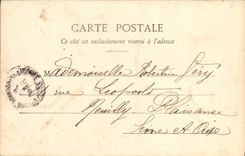 CARTE POSTALE
Ce côté est exclusivement réservé à l'adresse
Mademoiselle Géry
rue Léopold
Neuilly Plaisance
Seine et Oise